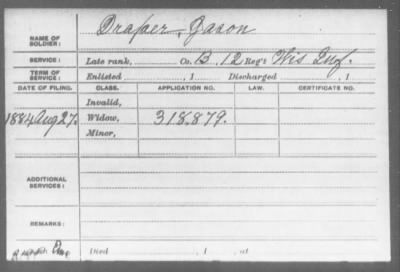 NAME OF SOLDIER: Draper, Jason
SERVICE: Late rank, Co. B, 12 Reg't Wis Inf.
TERM OF SERVICE: Enlisted , 1 Discharged , 1
DATE OF FILING. CLASS. APPLICATION NO. LAW. CERTIFICATE NO.
Invalid,
1884 Aug 27. Widow, 318,879.
Minor,
ADDITIONAL SERVICES:
REMARKS:
Died , 1 , at